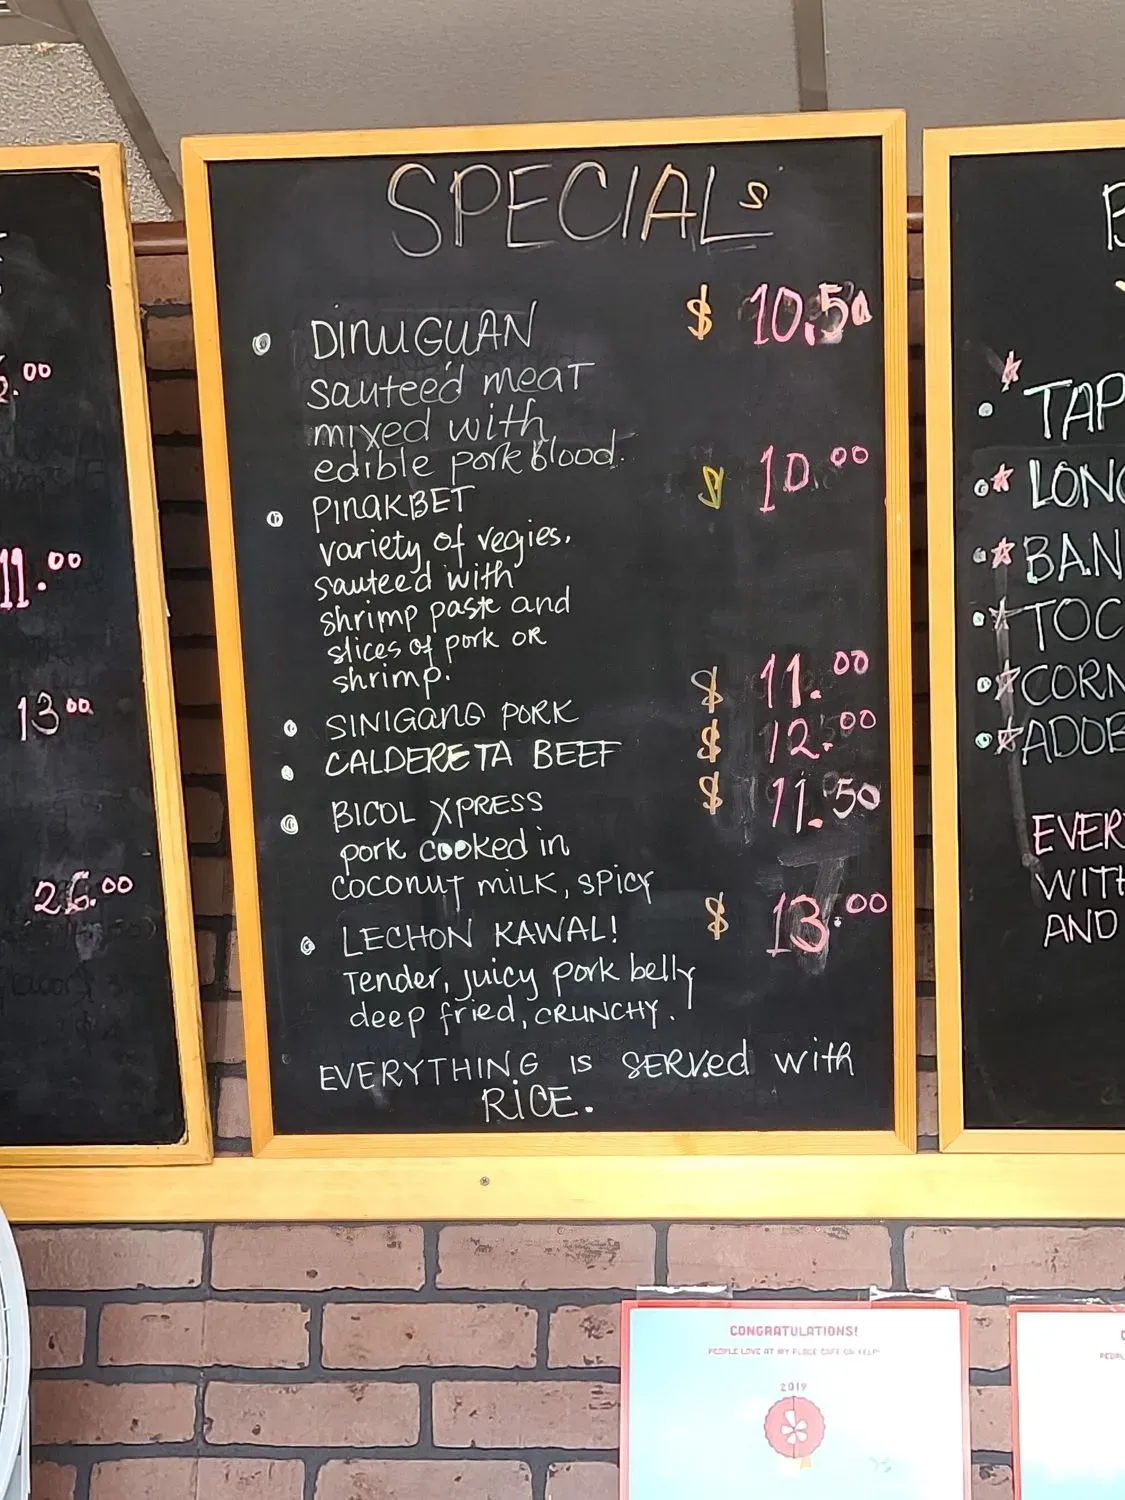 SPECIALs
DINUGUAN $ 10.50
sauteed meat
mixed with
edible pork blood.
PINAKBET $ 10.00
variety of vegies.
sauteed with
shrimp paste and
slices of pork or
shrimp.
SINIGANG PORK $ 11.00
CALDERETA BEEF $ 12.00
BICOL XPRESS $ 11.50
pork cooked in
coconut milk, spicy
LECHON KAWAL! $ 13.00
Tender, juicy pork belly
deep fried, CRUNCHY.
EVERYTHING IS SERVED with
RICE.
11.00
13.00
26.00
TAP
LONG
BAN
TOC
CORN
ADOB
EVER
WITH
AND
CONGRATULATIONS!
PEOPLE LOVE AT MY PLACE CAFE ON YELP!
2019